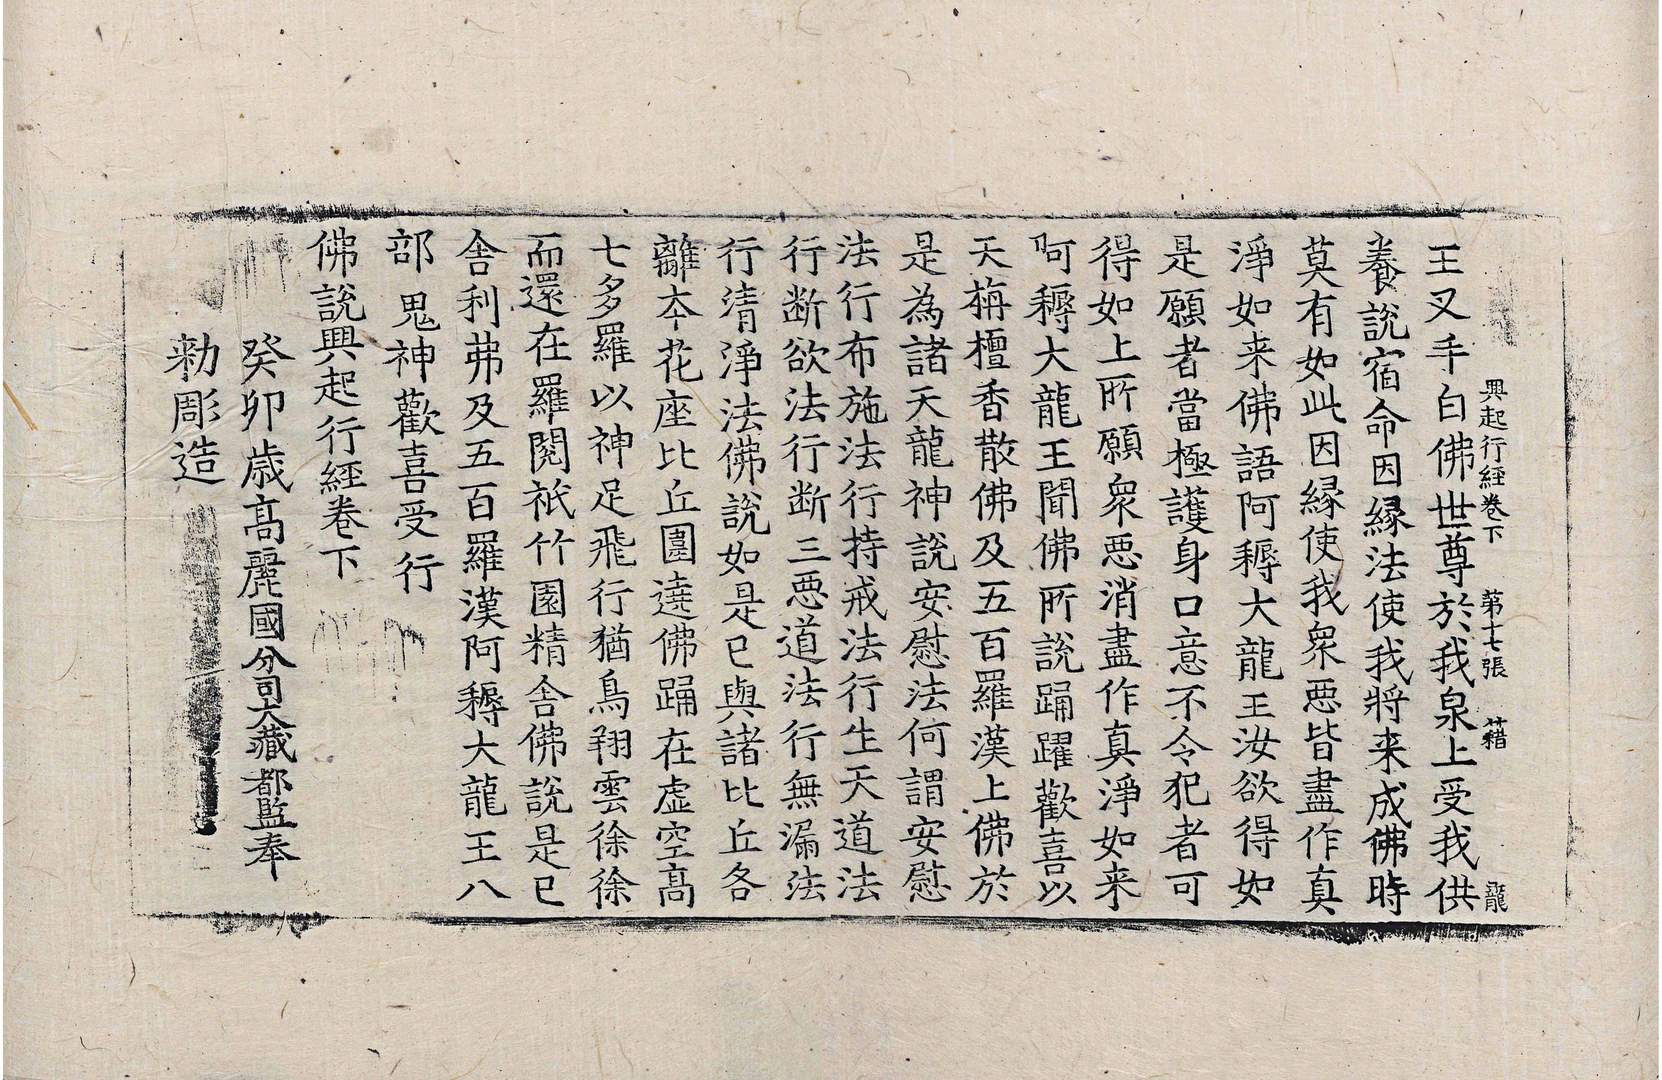 興起行經卷下 第十七張 藉 龍
王叉手白佛世尊於我泉上受我供
養說宿命因縁法使我將来成佛時
莫有如此因縁使我衆惡皆盡作真
淨如来佛語阿耨大龍王汝欲得如
是願者當極護身口意不令犯者可
得如上所願衆惡消盡作真淨如来
阿耨大龍王聞佛所說踊躍歡喜以
天栴檀香散佛及五百羅漢上佛於
是為諸天龍神說安慰法何謂安慰
法行布施法行持戒法行生天道法
行断欲法行断三惡道法行無漏法
行清淨法佛說如是已與諸比丘各
離本花座比丘圍遶佛踊在虚空髙
七多羅以神足飛行猶鳥翔雲徐徐
而還在羅閱祇竹園精舍佛說是已
舍利弗及五百羅漢阿耨大龍王八
部鬼神歡喜受行
佛說興起行經卷下
癸卯歳髙麗國分司大藏都監奉
勑彫造